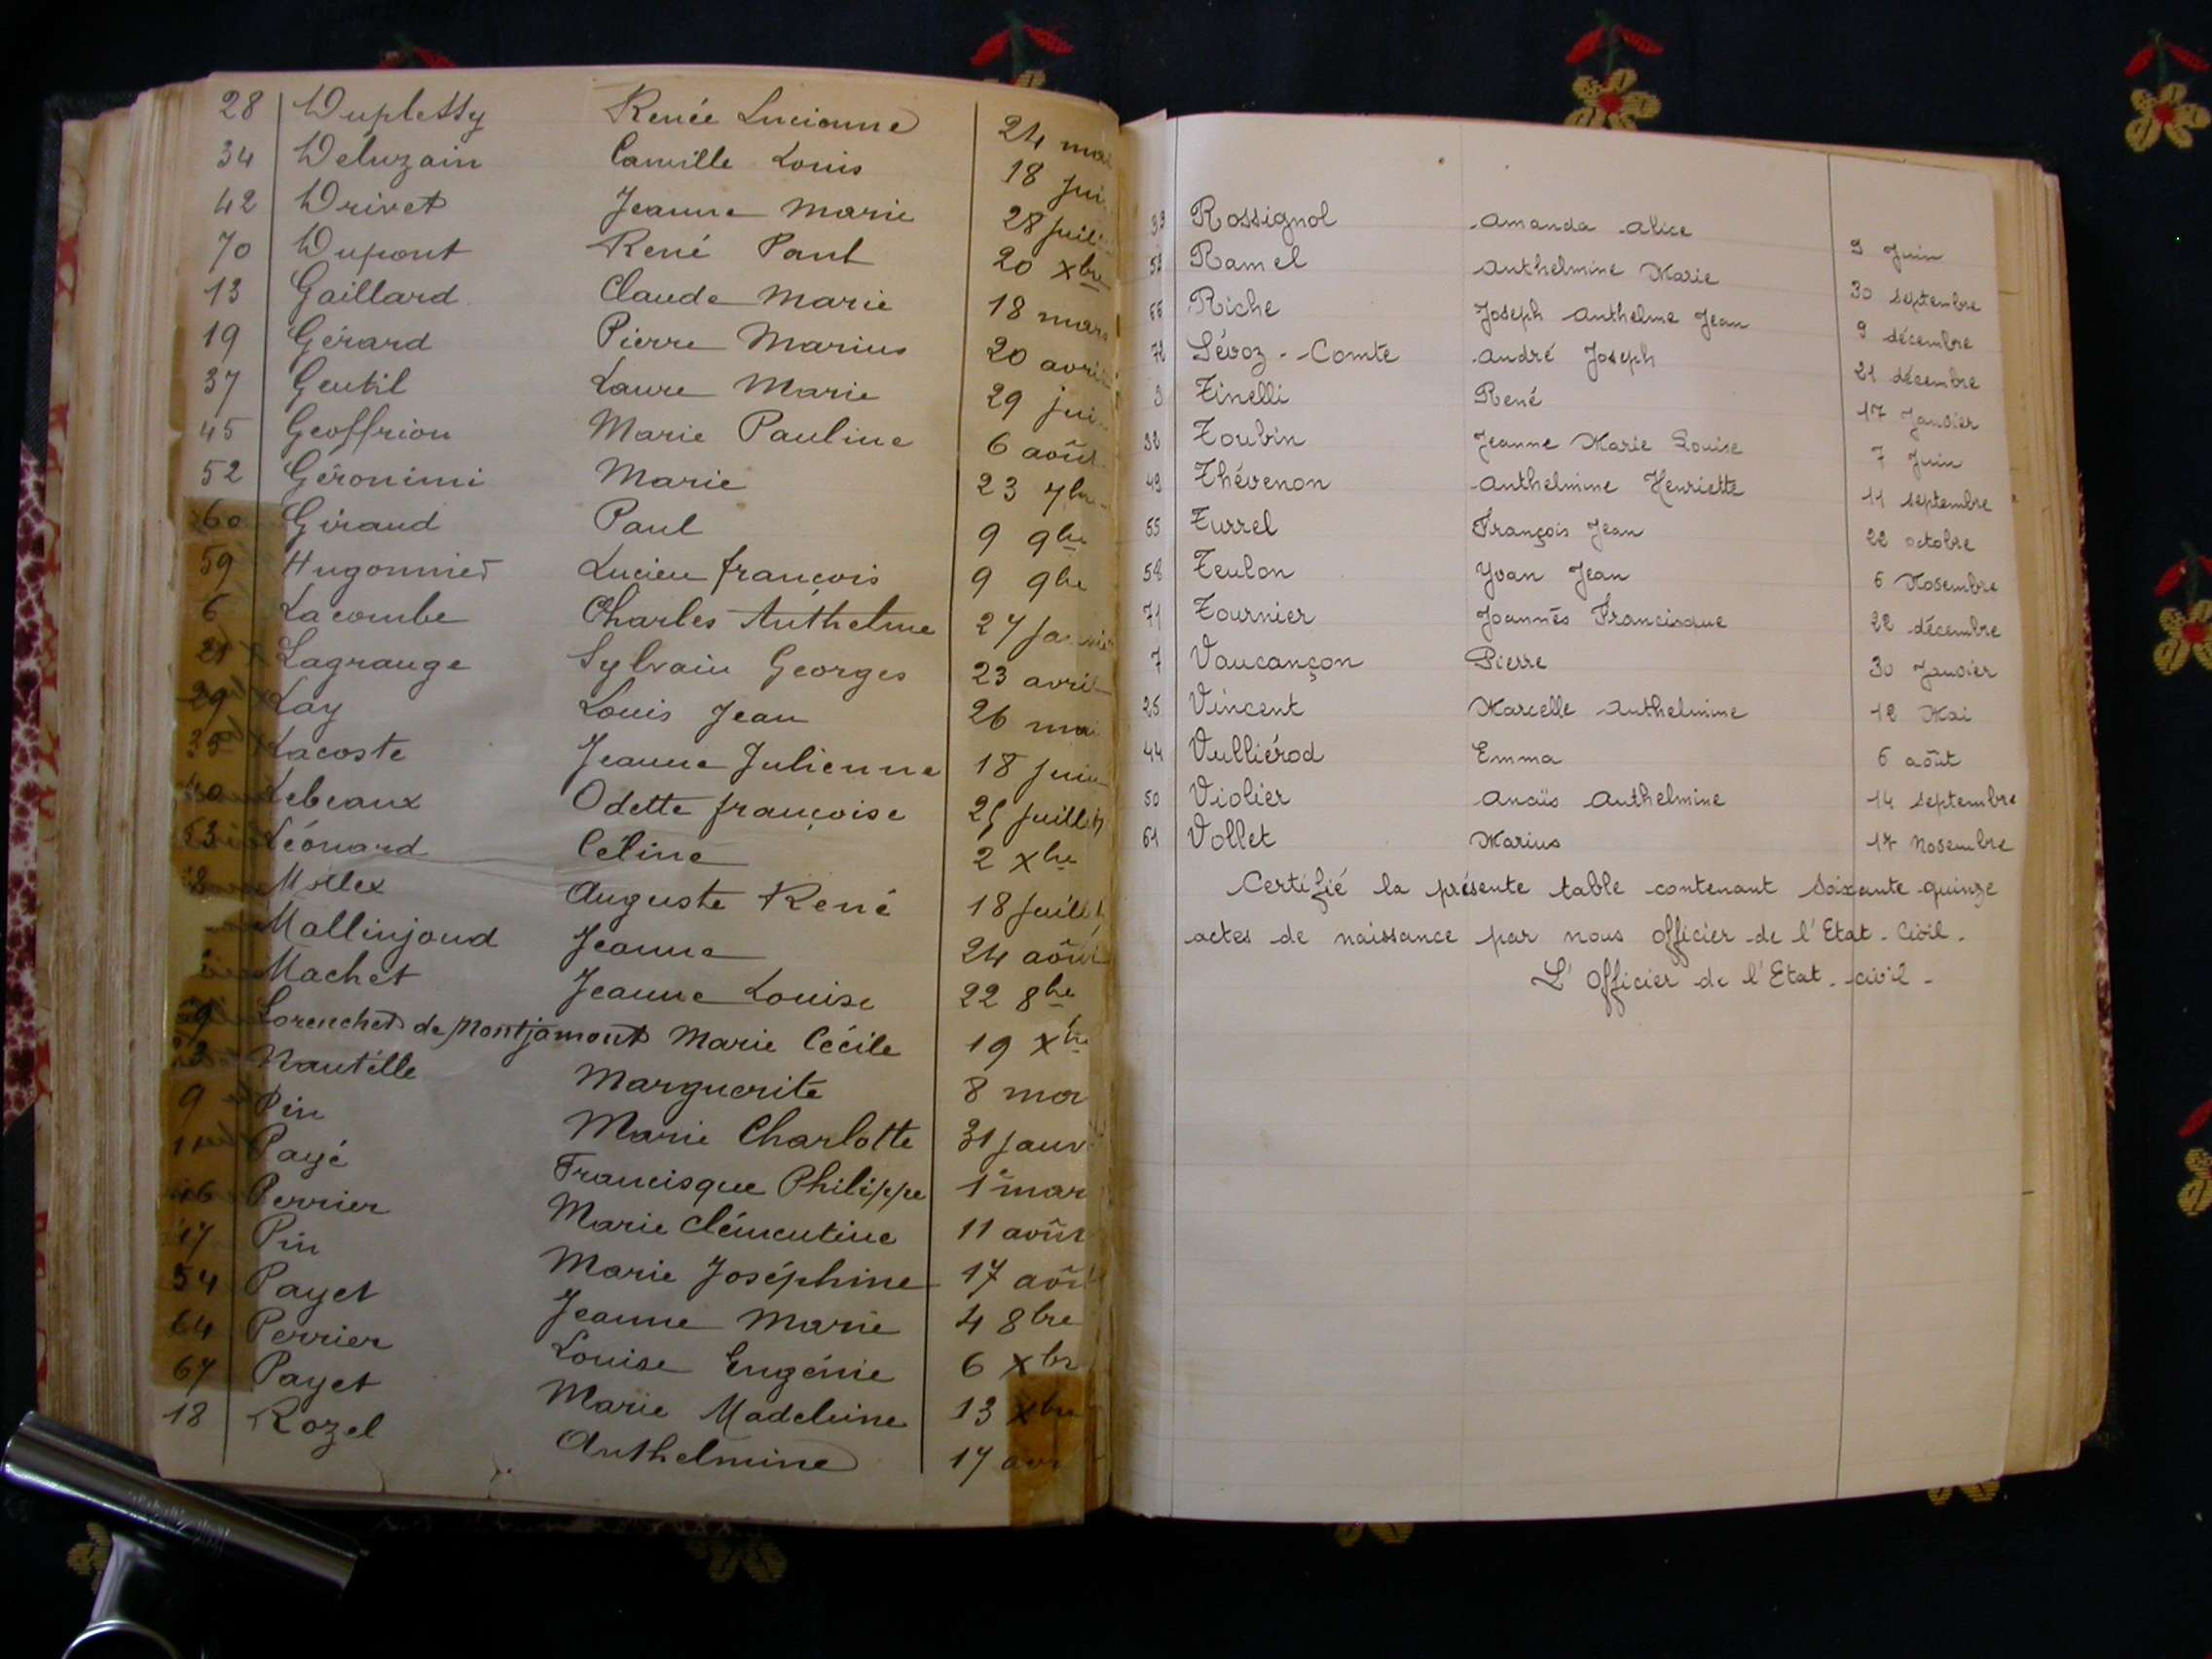 28 Duplessy Renée Lucienne 24 mai
34 Deluzain Camille Louis 18 jui
42 Drivet Jeanne Marie 28 juil
70 Dupont René Paul 20 Xbre
13 Gaillard Claude Marie 18 mars
19 Gérard Pierre Marius 20 avri
37 Gentil Laure Marie 29 jui
45 Geoffrion Marie Pauline 6 août
52 Géronimi Marie 23 7bre
60 Giraud Paul 9 9bre
59 Hugonnier Lucien françois 9 9bre
6 Lacombe Charles Anthelme 27 janvier
21 Lagrange Sylvain Georges 23 avril
29 Lay Louis Jean 26 mai
35 Lacoste Jeanne Julienne 18 juin
40 Lebeaux Odette françoise 25 juillet
53 Léonard Céline 2 Xbre
Mollex Auguste René 18 juillet
Mallinjoud Jeanne 24 août
Machet Jeanne Louise 22 8bre
Lorenchet de Montjamont Marie Cécile 19 Xbre
Nantille Marguerite 8 mar
9 Pin Marie Charlotte 31 janv
Payé Francisque Philippe 1er mar
46 Perrier Marie Clémentine 11 août
47 Pin Marie Joséphine 17 août
54 Payet Jeanne Marie 4 8bre
64 Perrier Louise Eugénie 6 Xbr
67 Payet Marie Madeleine 13 Xbre
18 Rozel Anthelmine 17 avr
33 Rossignol Amanda Alice 9 Juin
52 Ramel Anthelmine Marie 30 septembre
66 Riche Joseph Anthelme Jean 9 décembre
72 Sévoz-Comte André Joseph 21 décembre
3 Tinelli René 17 Janvier
32 Toubin Jeanne Marie Louise 7 Juin
49 Thévenon Anthelmine Henriette 11 septembre
55 Turrel François Jean 22 octobre
58 Teulon Yvan Jean 6 Novembre
71 Tournier Joannès Francisque 22 décembre
7 Vaucançon Pierre 30 Janvier
25 Vincent Marcelle Anthelmine 12 Mai
44 Vulliérod Emma 6 août
50 Violier Anaïs Anthelmine 14 septembre
61 Vollet Marius 17 Novembre
Certifié la présente table contenant soixante quinze
actes de naissance par nous officier de l'Etat-Civil.
L'officier de l'Etat-civil-